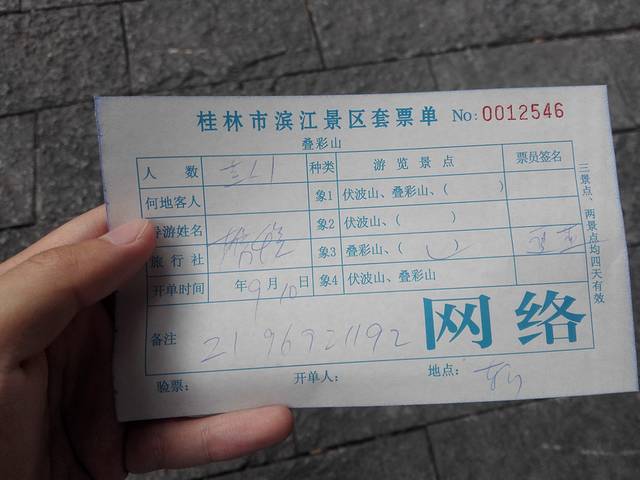 桂林市滨江景区套票单 No:0012546
叠彩山
人数 种类 游览景点 票员签名
何地客人 象1 伏波山、叠彩山、( )
象2 伏波山、( )
导游姓名
旅行社 象3 叠彩山、( )
开单时间 年9月10日 象4 伏波山、叠彩山
备注 2196921192 网络
验票: 开单人: 地点:
三景点、两景点均四天有效